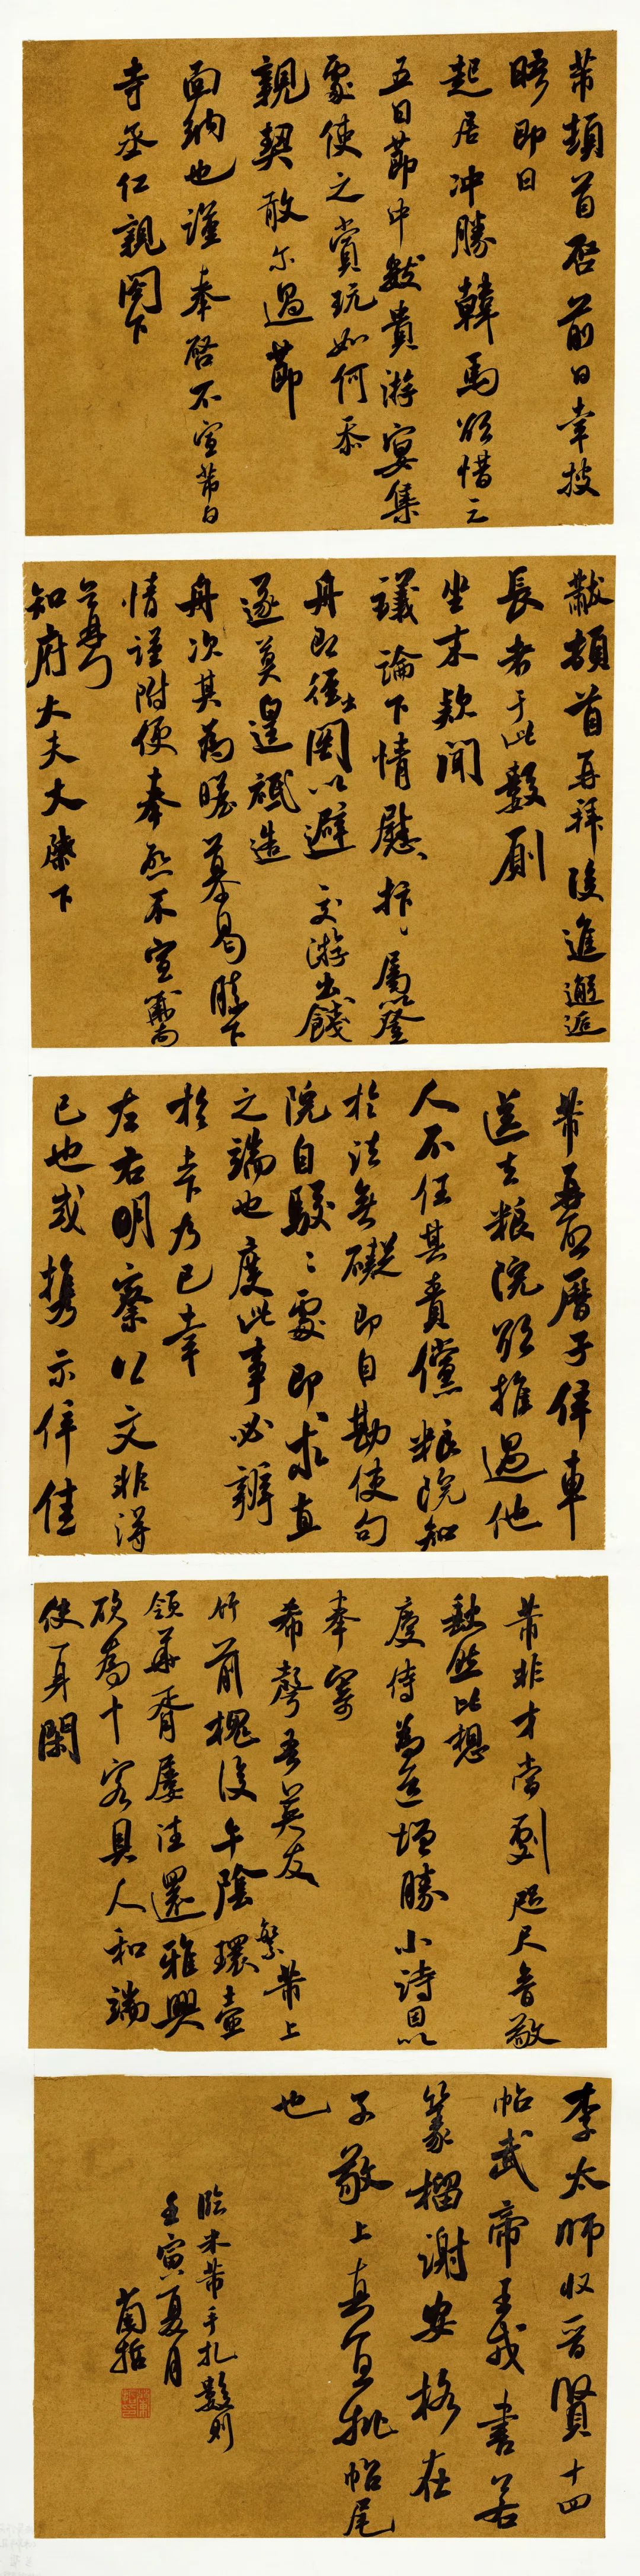 芾頓首启前日幸披
晤即日
起居冲勝韓馬欲借之
五日節中數貴游宴集
處使之賞玩如何忝
親契敢尓過節
面納也謹奉啓不宣芾白
寺丞仁親閣下
黻頓首再拜後進邂逅
長者于此數厠
坐末款聞
議論下情慰抃屬以登
舟即徑出関以避交游出餞
遂莫遑祗造
舟次其為瞻慕曷勝下
情謹附便奉啓不宣黻頓首
知府大夫大棨下
芾再啓曆子倅車
送去粮院欲推過他
人不任其責儻粮院知
於法無礙即自勘使句
院自駁駁處即求直
之端也度此事必辦
於上下乃已幸
左右明察公文非得
已也或携示倅佳
芾非才當劇咫尺音敬
缺然比想
慶侍為道增勝小詩因以
奉寄
希聲吾英友 芾上
竹前槐後午陰環壺
領華胥屡往還雅興
欲為十客具人和端
使一身閑
李太師收晋賢十四
帖武帝王戎書若
篆籀謝安格在
子敬上真宜批帖尾
也
臨米芾手札數則
壬寅夏月